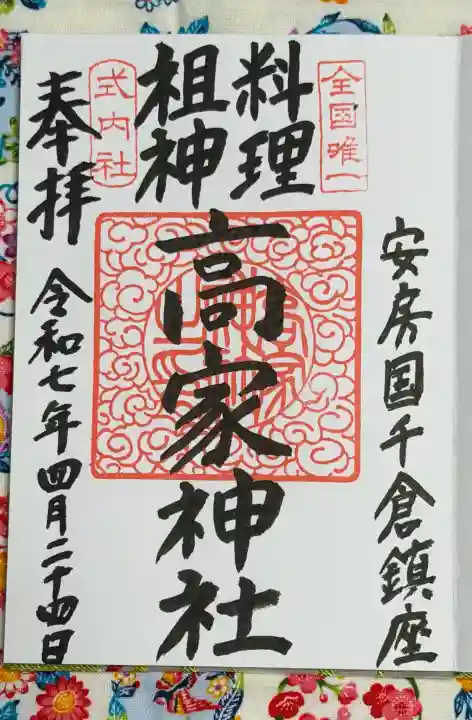 全国唯一
安房国千倉鎮座
料理
祖神
高家神社
式内社
奉拝
令和七年四月二十四日